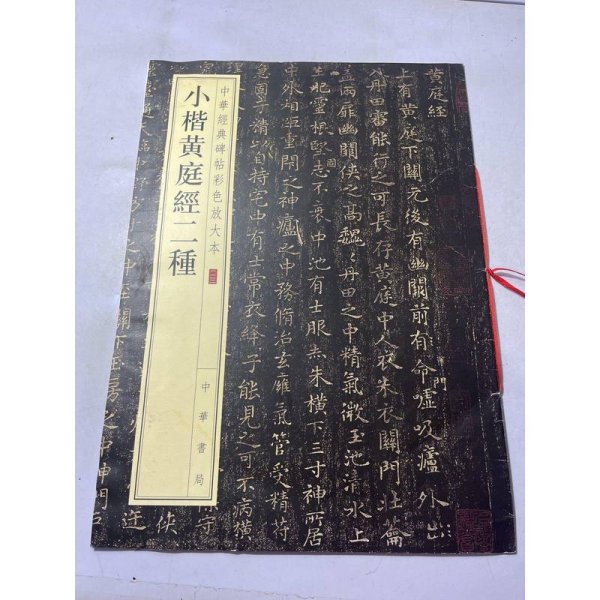 黄庭經
上有黄庭下關元後有幽闕前有命門噓吸廬外出
入丹田審能行之可長存黄庭中人衣朱衣關門壯籥
蓋兩扉幽闕俠之高魏魏丹田之中精氣微玉池清水上
生肥靈根堅志不衰中池有士服赤朱橫下三寸神所居
中外相距重閇之神廬之中務脩治玄廱氣管受精符
急固子精以自持宅中有士常衣絳子能見之可不病橫
中華經典碑帖彩色放大本
小楷黄庭經二種
中華書局